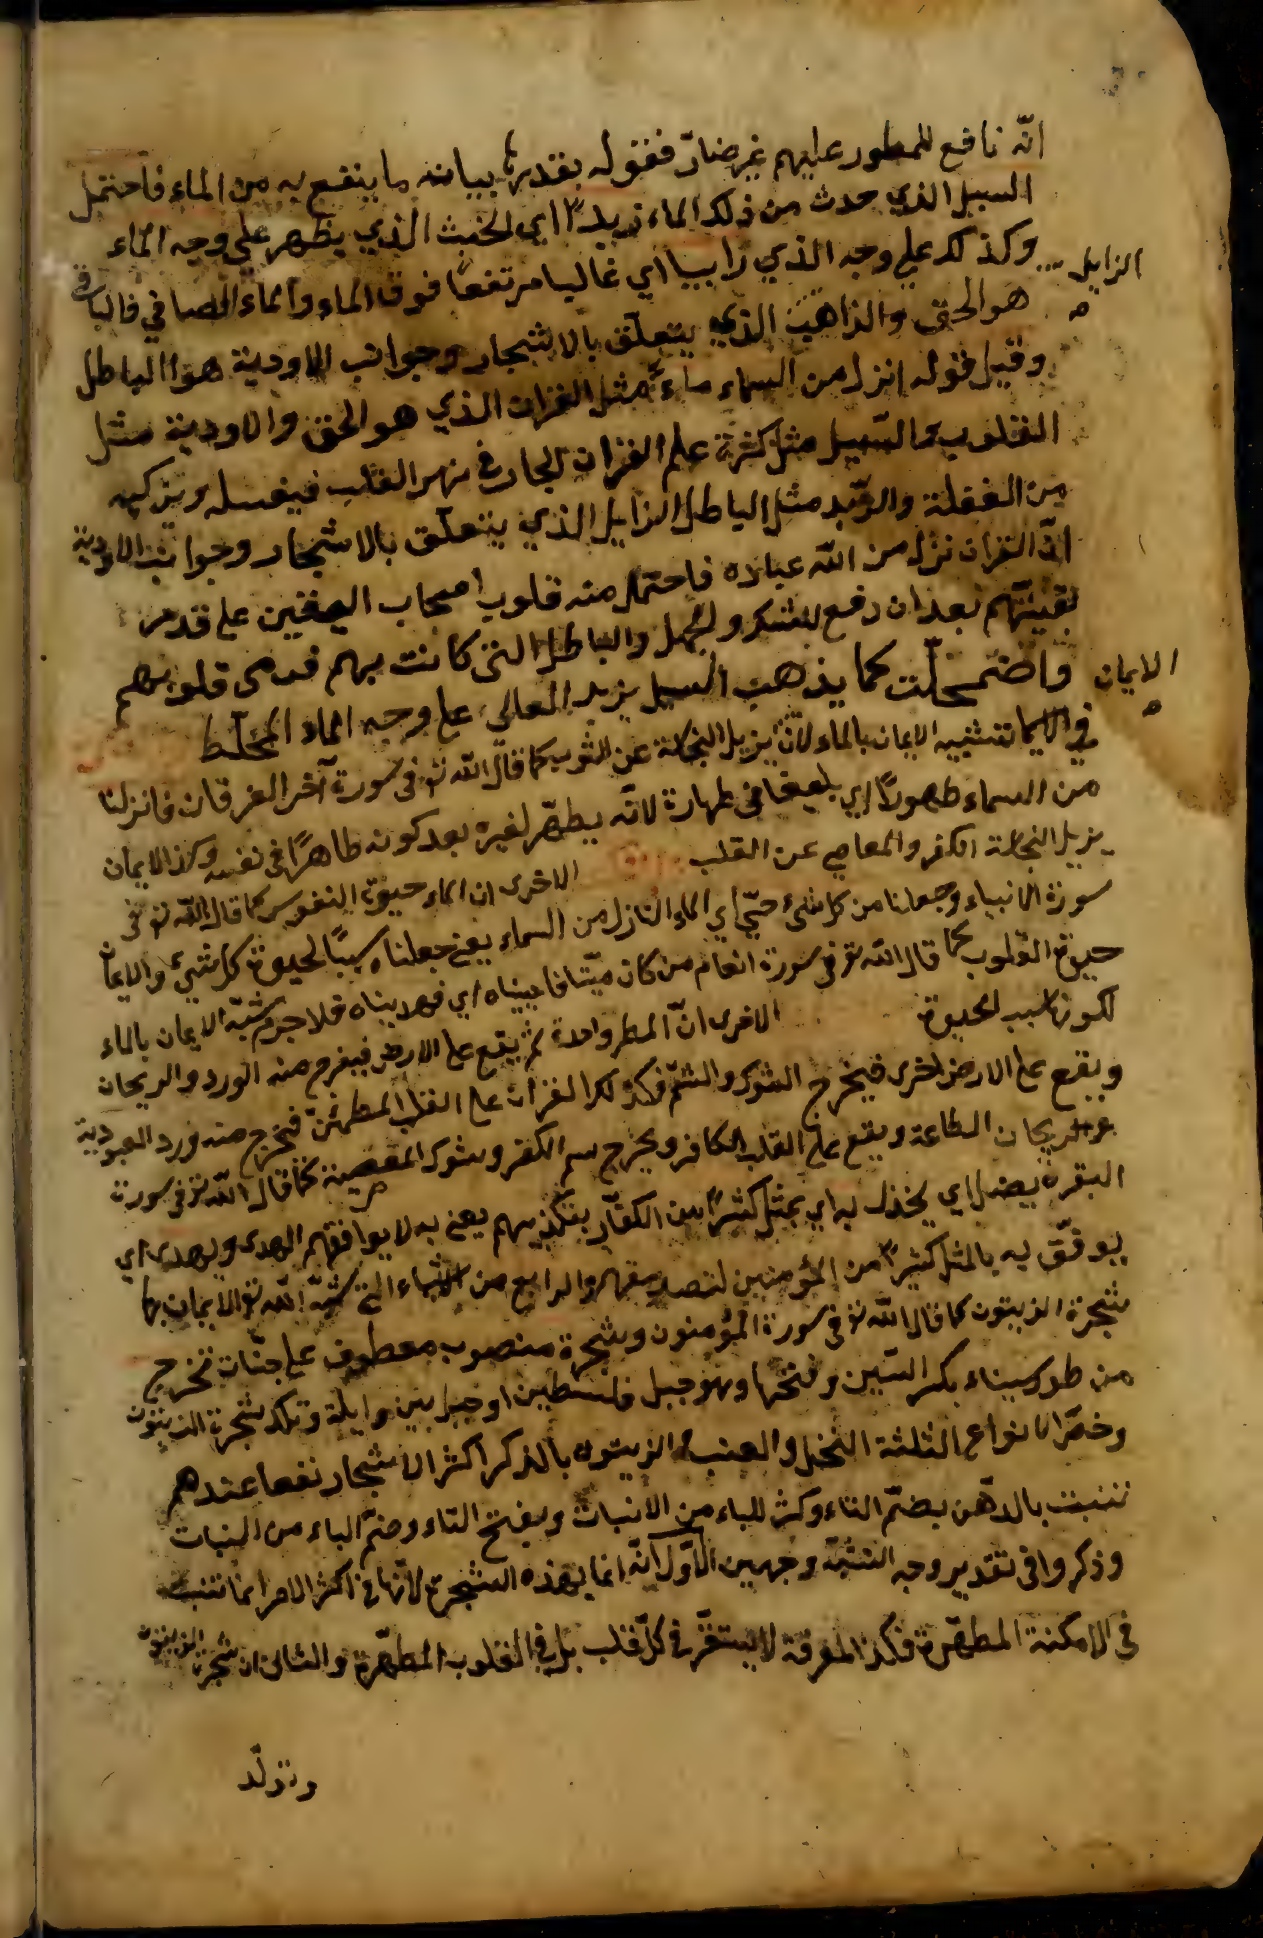 انّه نافع للمطور عليهم غير ضارّ فقوله بقدرها بيانه ما ينفع به من الماء فاحتمل
السيل الذي حدث من ذلك الماء زبدا اي الخبث الذي يظهر على وجه الماء
وكذلك على وجه الذي رابيا اي غاليا مرتفعا فوق الماء والماء الصافي فالباقي
الزايل
هو الحق والذاهب الذي يتعلّق بالاشجار وجوانب الاودية هو الباطل
وقيل قوله انزل من السماء ماءً مثل القران الذي هو الحق والاودية مثل
القلوب والسّيل مثل كثرة علم القران الجار في نهر القلب فيغسله ويزكيه
من الغفلة والزّبد مثل الباطل الزايل الذي يتعلّق بالاشجار وجوانب الاودية
انّ القران نزل من الله عباده فاحتمل منه قلوب اصحاب اليقين على قدر
يقينهم بعد ان رفع الشكر والجهل والباطل التي كانت بهم قدمى قلوبهم
الايمان
واضمحلّت كما يذهب السيل بزبد المعالى على وجه الماء المختلط
في الايما تشبيه الايمان بالماء لانّ يزيل النجاسة عن الثوب كما قال الله تو في سورة آخر الفرقان فانزلنا
من السماء طهورًا اي بليغا في طهارة لانّه يطهّر لغيره بعد كونه طاهرًا في نفسه وكذا الايمان
يزيل النجاسة الكفر والمعاصي عن القلب الاخرى ان الماء حيوة النفوس كما قال الله تو في
سورة الانبياء وجعلنا من كل شئ حيّ اي الماء النازل من السماء يعني جعلناه سببًا لحيوة كل شئ والايمان
حيوة القلوب كما قال الله تو في سورة انعام من كان ميّتا فاحييناه اي فهديناه فلا جرم شبّه الايمان بالماء
لكونها سبب لحيوة الاخرى انّ المطر واحدة ثم يقع على الارض فيخرج منه الورد والريحان
ويقع على الارض اخرى فيخرج الشوك والسّم فكذلك القران على القلب المطمئنّ فيخرج منه ورد العبودية
وريحان الطاعة ويقع على القلب الكافر ويخرج سم الكفر وشوك المعصية كما قال الله تو في سورة
البقرة يضل اي يخذل به اي بمثل كثيرًا من الكفّار بتكذيبهم يعني به لا يوافقهم الهدى ويهدى اي
يوفّق به بالمثل كثيرًا من المؤمنين لتصديقهم والرابع من الاشياء التي شبّه الله تو الايمان بها
شجرة الزيتون كما قال الله تو في سورة المؤمنون وشجرة منصوب معطوف على جنّات تخرج
من طور سيناء بكسر السّين وفتحها وهو جبل فلسطين او جبل بين وايلة وتلك شجرة الزيتون
وخصّ الانواع الثلثة النخل والعنب والزيتون بالذكر اكثر الاشجار نفعا عندهم
تنبت بالدهن بضمّ التاء وكسر للباء من الانبات وبفتح التاء وضمّ الباء من النبات
وذكروا في تقدير وجه التشبّه وجهين الاوّل انّه انما بهذه الشجرة لانّها في اكثر الامر انما تنبت
في الامكنة المطهّرة فكذ المعرفة لا يستقرّ في كلّ قلب بل في القلوب المطهّرة والثاني ان شجرة الزيتون
وتولّد